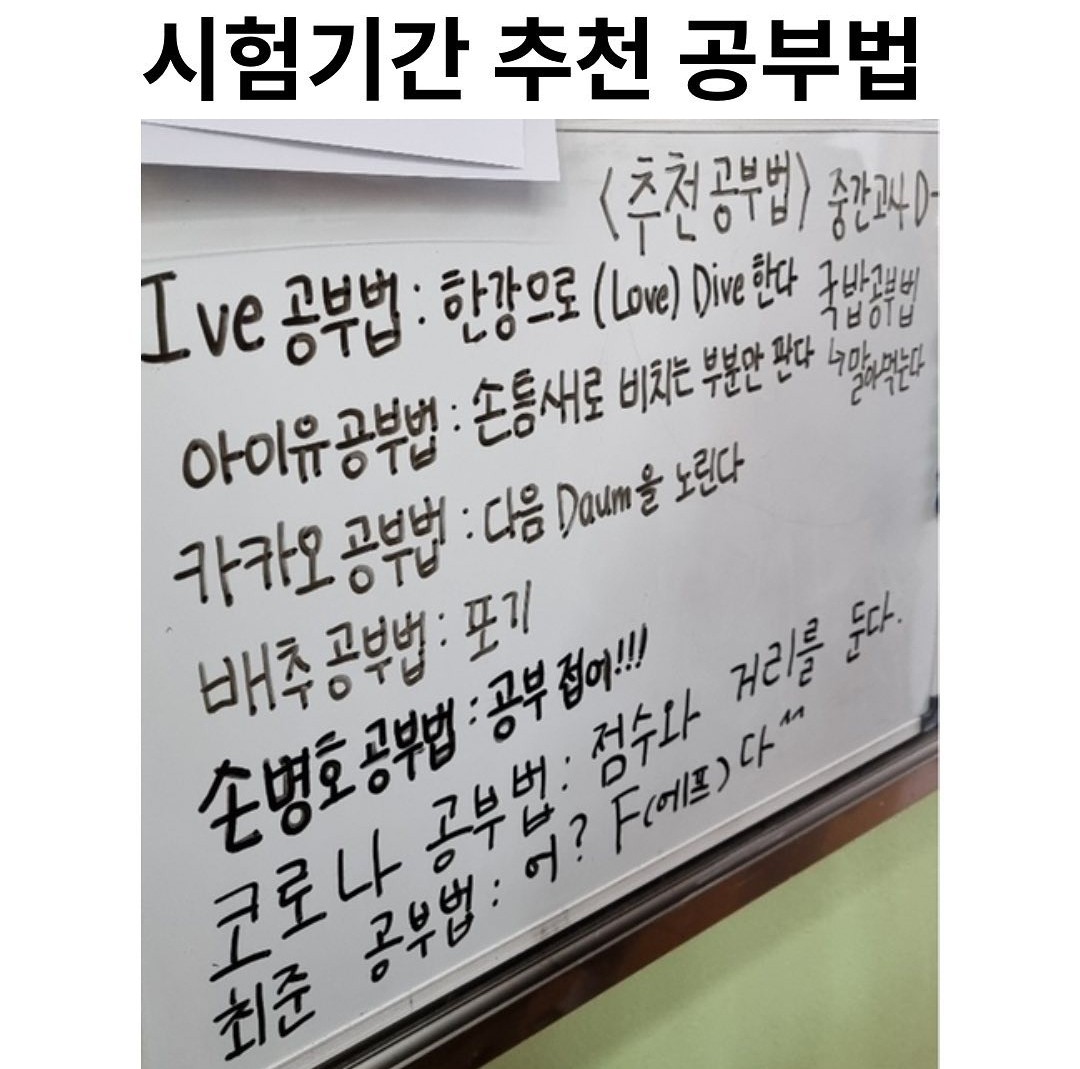 시험기간 추천 공부법
<추천공부법> 중간고사 D-
Ive 공부법 : 한강으로 (Love) Dive 한다
국밥공부법
↳말아먹는다
아이유공부법 : 손틈새로 비치는 부분만 판다
카카오공부법 : 다음 Daum을 노린다
배추공부법 : 포기
손병호공부법 : 공부 접어!!!
코로나 공부법 : 점수와 거리를 둔다.
최준 공부법 : 어? F(에프)다